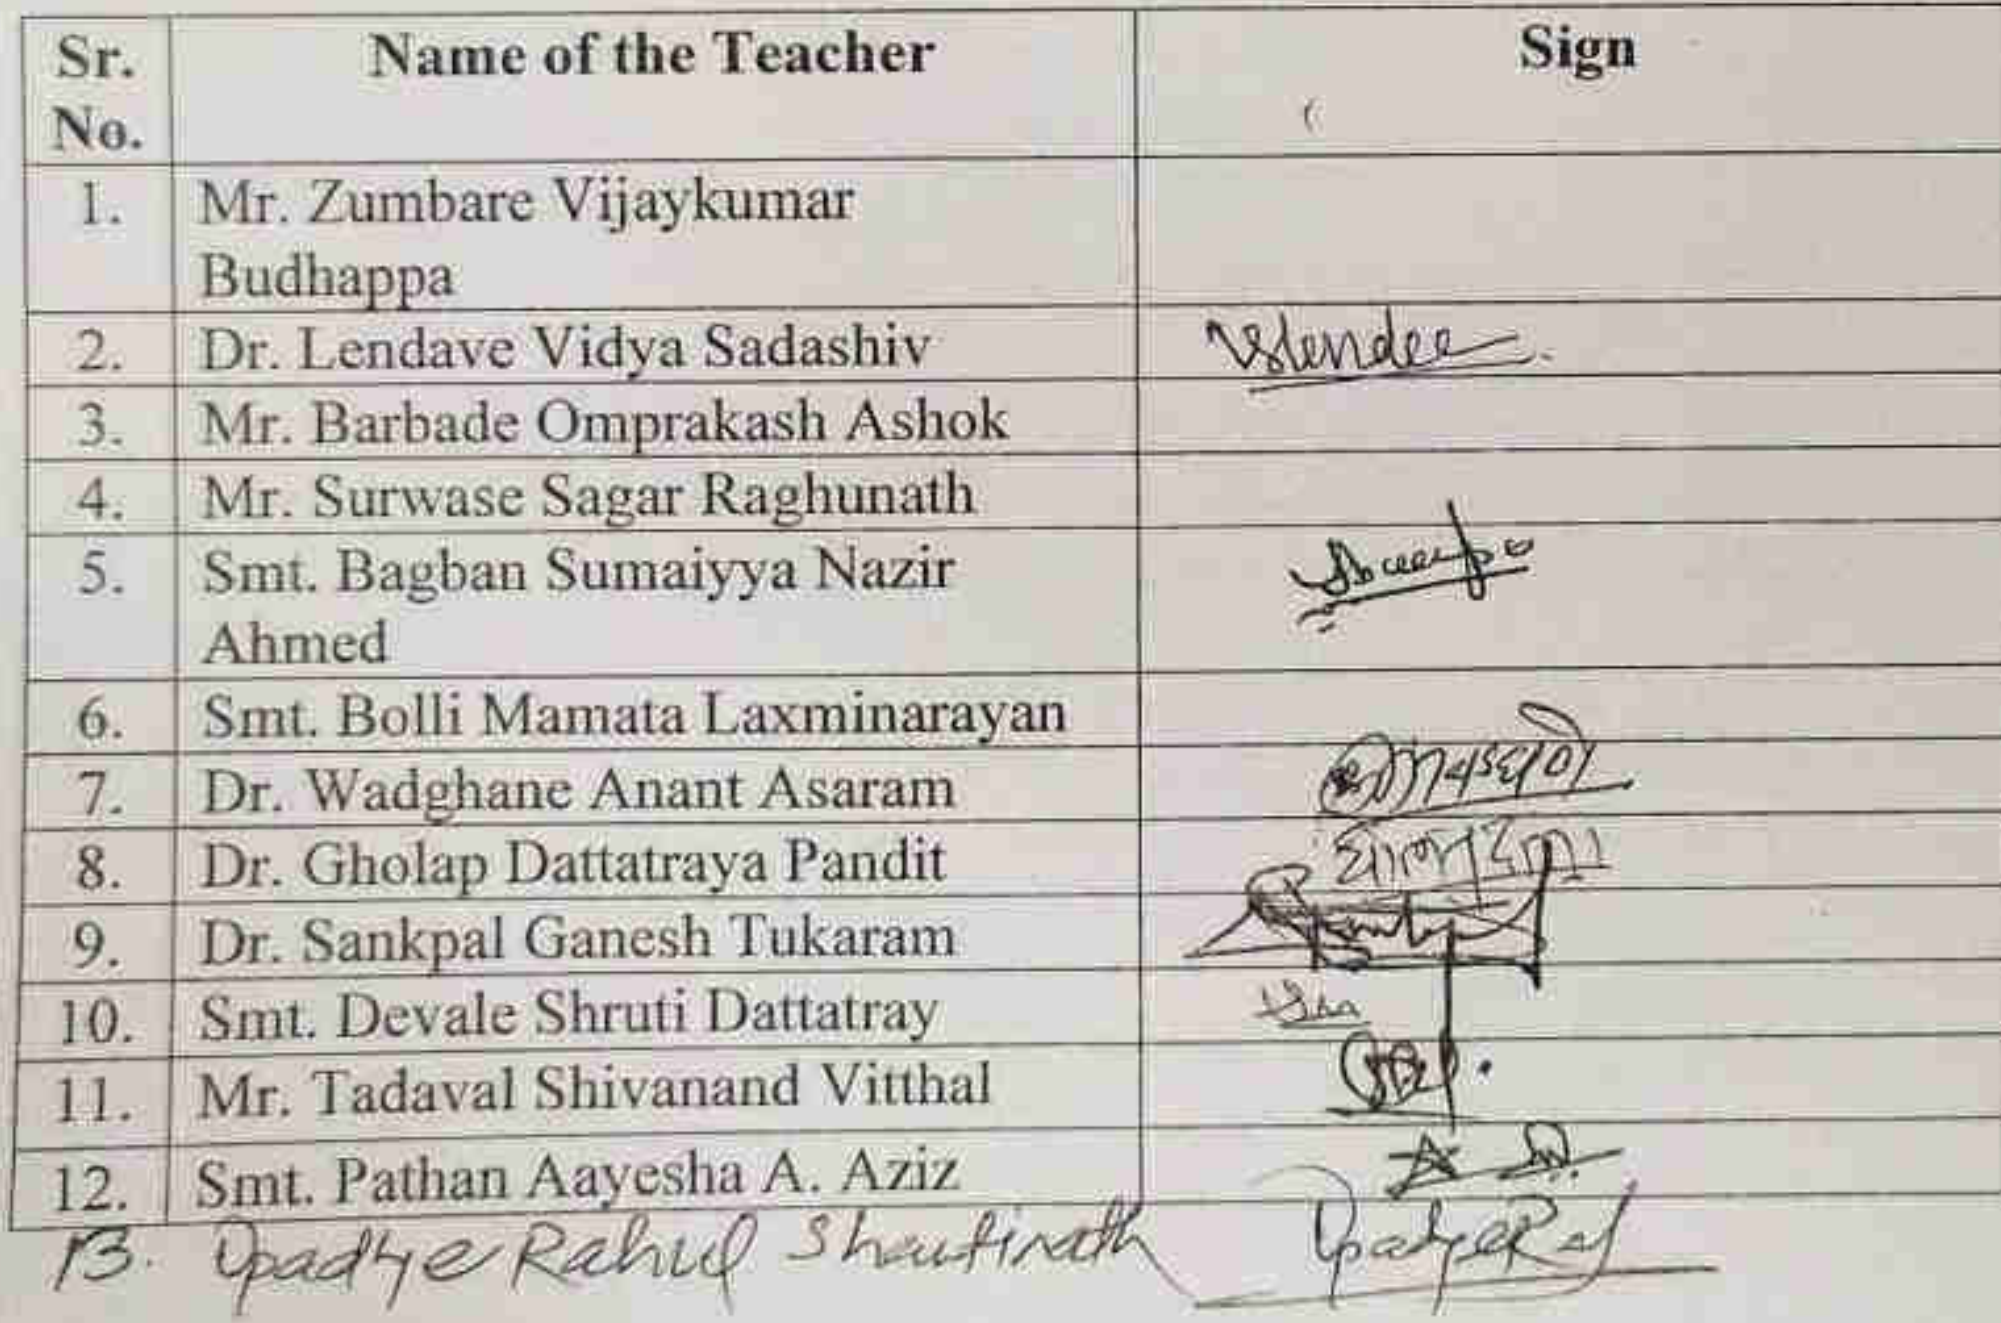 Sr. No. Name of the Teacher Sign
1. Mr. Zumbare Vijaykumar
Budhappa
2. Dr. Lendave Vidya Sadashiv
3. Mr. Barbade Omprakash Ashok
4. Mr. Surwase Sagar Raghunath
5. Smt. Bagban Sumaiyya Nazir
Ahmed
6. Smt. Bolli Mamata Laxminarayan
7. Dr. Wadghane Anant Asaram
8. Dr. Gholap Dattatraya Pandit
9. Dr. Sankpal Ganesh Tukaram
10. Smt. Devale Shruti Dattatray
11. Mr. Tadaval Shivanand Vitthal
12. Smt. Pathan Aayesha A. Aziz
13. Upadhye Rahul Shantinath